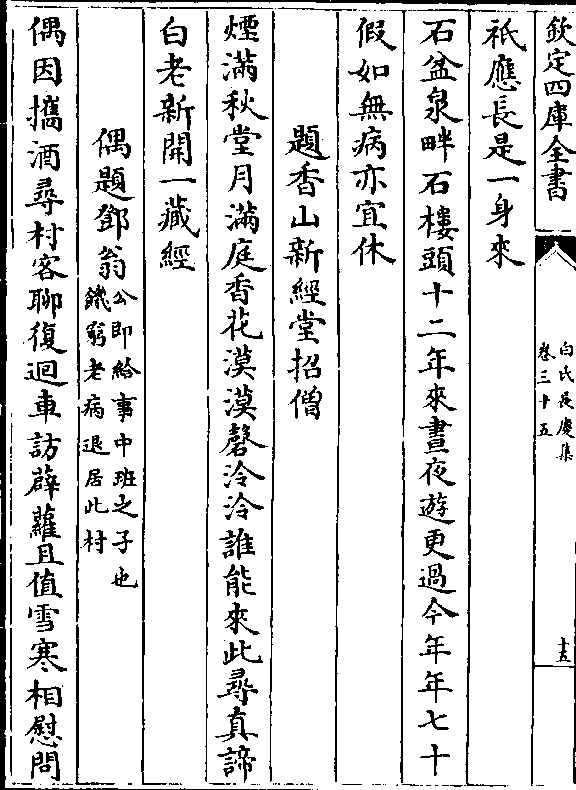 欽定四庫全書
白氏長慶集
卷三十五
十五
祇應長是一身來
石盆泉畔石樓頭十二年來晝夜遊更過今年年七十
假如無病亦宜休
題香山新經堂招僧
煙滿秋堂月滿庭香花漠漠磬泠泠誰能來此尋真諦
白老新開一藏經
偶題鄧翁公即給事中班之子也
饑窮老病退居此村
偶因攜酒尋村客聊復迴車訪薜蘿且值雪寒相慰問